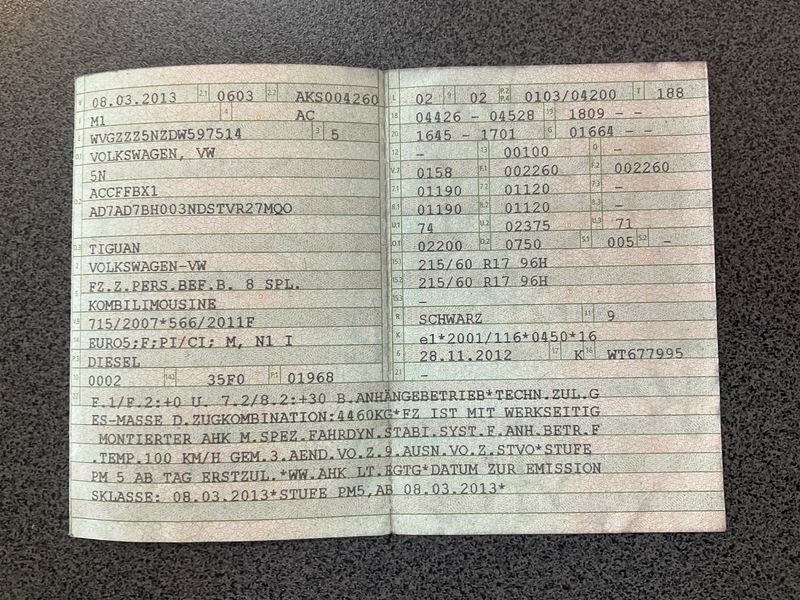 B 08.03.2013 2.1 0603 2.2 AKS004260
J M1 4 AC
E WVGZZZ5NZDW597514 3 5
D.1 VOLKSWAGEN, VW
5N
D.2 ACCFFBX1
AD7AD7BH003NDSTVR27MQO
D.3 TIGUAN
2 VOLKSWAGEN-VW
5 FZ.Z.PERS.BEF.B. 8 SPL.
KOMBILIMOUSINE
V.9 715/2007*566/2011F
14 EURO5;F;PI/CI; M, N1 I
P.3 DIESEL
10 0002 14.1 35F0 P.1 01968
L 02 9 02 P.2 P.4 0103/04200 T 188
18 04426 - 04528 19 1809 - -
20 1645 - 1701 G 01664 - -
12 - 13 00100 Q -
V.7 0158 F.1 002260 F.2 002260
7.1 01190 7.2 01120 7.3 -
8.1 01190 8.2 01120 8.3 -
U.1 74 U.2 02375 U.3 71
O.1 02200 O.2 0750 S.1 005 S.2 -
15.1 215/60 R17 96H
15.2 215/60 R17 96H
15.3 -
R SCHWARZ 11 9
K e1*2001/116*0450*16
6 28.11.2012 17 K 16 WT677995
21 -
22 F.1/F.2:+0 U. 7.2/8.2:+30 B.ANHÄNGEBETRIEB*TECHN.ZUL.G
ES-MASSE D.ZUGKOMBINATION:4460KG*FZ IST MIT WERKSEITIG
MONTIERTER AHK M.SPEZ.FAHRDYN.STABI.SYST.F.ANH.BETR.F
.TEMP.100 KM/H GEM.3.AEND.VO.Z.9.AUSN.VO.Z.STVO*STUFE
PM 5 AB TAG ERSTZUL.*WW.AHK LT.EGTG*DATUM ZUR EMISSION
SKLASSE: 08.03.2013*STUFE PM5,AB 08.03.2013*